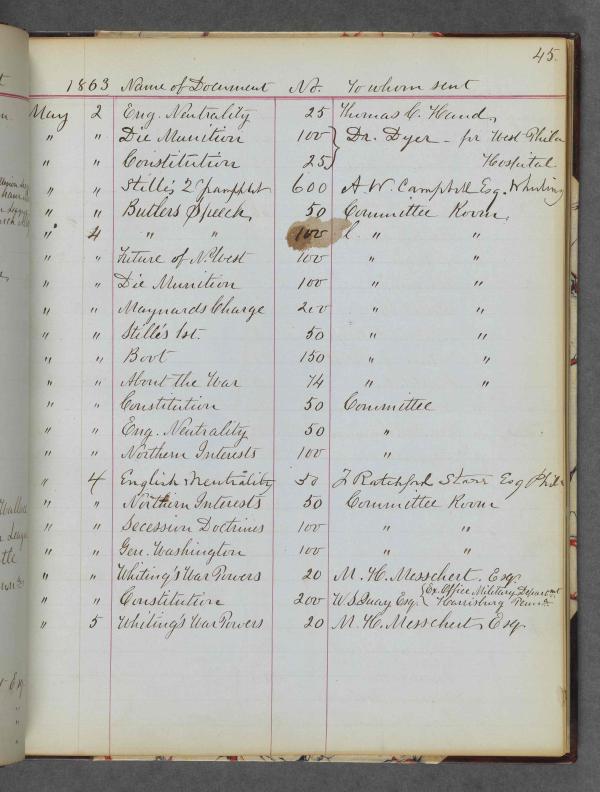 45.
1863 Name of Document No. To whom sent
May 2 Eng. Neutrality 25 Thomas C. Hand,
" " Die Munition 100 } Dr. Dyer - for West Phila
" " Constitution 25 } Hospital
" " Stillé's 2d pamphlet 600 A W. Campbell Esq. Wheeling
" " Butlers Speech, 50 Committee Room,
" 4 " " 100 C. " "
" " Future of N. West 100 " "
" " Die Munition 100 " "
" " Maynards Charge 200 " "
" " Stillé's 1st. 50 " "
" " Boot 150 " "
" " About the War 74 " "
" " Constitution 50 Committee
" " Eng. Neutrality 50 "
" " Northern Interests 100 "
" 4 English Neutrality 50 J Ratchford Starr Esq Phila
" " Northern Interests 50 Committee Room
" " Secession Doctrines 100 " "
" " Gen. Washington 100 " "
" " Whiting's War Powers 20 M. H. Messchert. Esq.
" " Constitution 200 W S Quay Esq. { Ex. Office Military Deparmt
Harrisburg Penna
" 5 Whiting's War Powers 20 M. H. Messchert, Esq